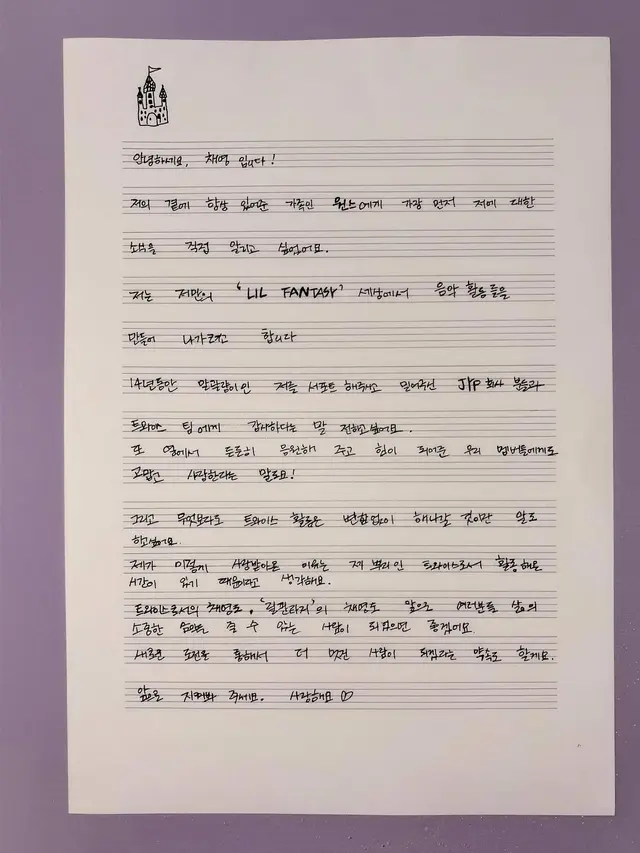 안녕하세요, 채영 입니다!
저의 곁에 항상 있어준 가족인 원스에게 가장 먼저 저에 대한
소식을 직접 알리고 싶었어요.
저는 저만의 'LIL FANTASY' 세상에서 음악 활동들을
만들어 나가려고 합니다
14년동안 말괄량이인 저를 서포트 해주시고 믿어주신 JYP 회사 분들과
트와이스 팀에게 감사하다는 말 전하고싶어요.
또 옆에서 든든히 응원해 주고 힘이 되어준 우리 멤버들에게도
고맙고 사랑한다는 말도요!
그리고 무엇보다도 트와이스 활동은 변함없이 해나갈 것이란 말도
하고싶어요.
제가 이렇게 사랑받아온 이유는 제 뿌리인 트와이스로서 활동해온
시간이 있기 때문이라고 생각해요.
트와이스로서의 채영도, '릴판타지'의 채영도 앞으로 여러분들 삶의
소중한 순간을 줄 수 있는 사람이 되었으면 좋겠어요.
새로운 도전을 통해서 더 멋진 사람이 되겠다는 약속도 할게요.
앞으로 지켜봐 주세요. 사랑해요 ♡